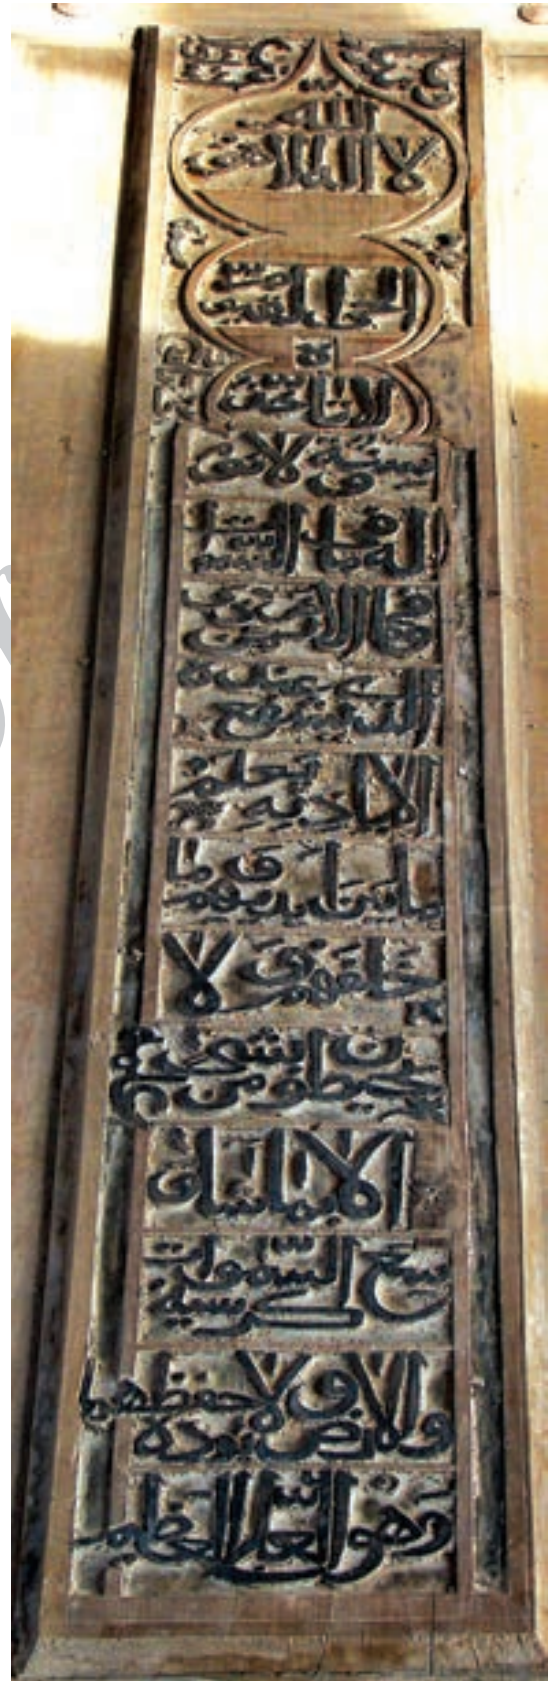 الله
لا اله الا هو
الحي القيوم
لا تاخذه
سنة و لا نوم
له ما في السموات
و ما في الارض من ذي
الذي يشفع عنده
الا باذنه يعلم
ما بين ايديهم و ما
خلفهم و لا
يحيطون بشيء من علمه
الا بما شاء و
سع كرسيه السموات
و الارض و لا يوده حفظهما
و هو العلي العظيم